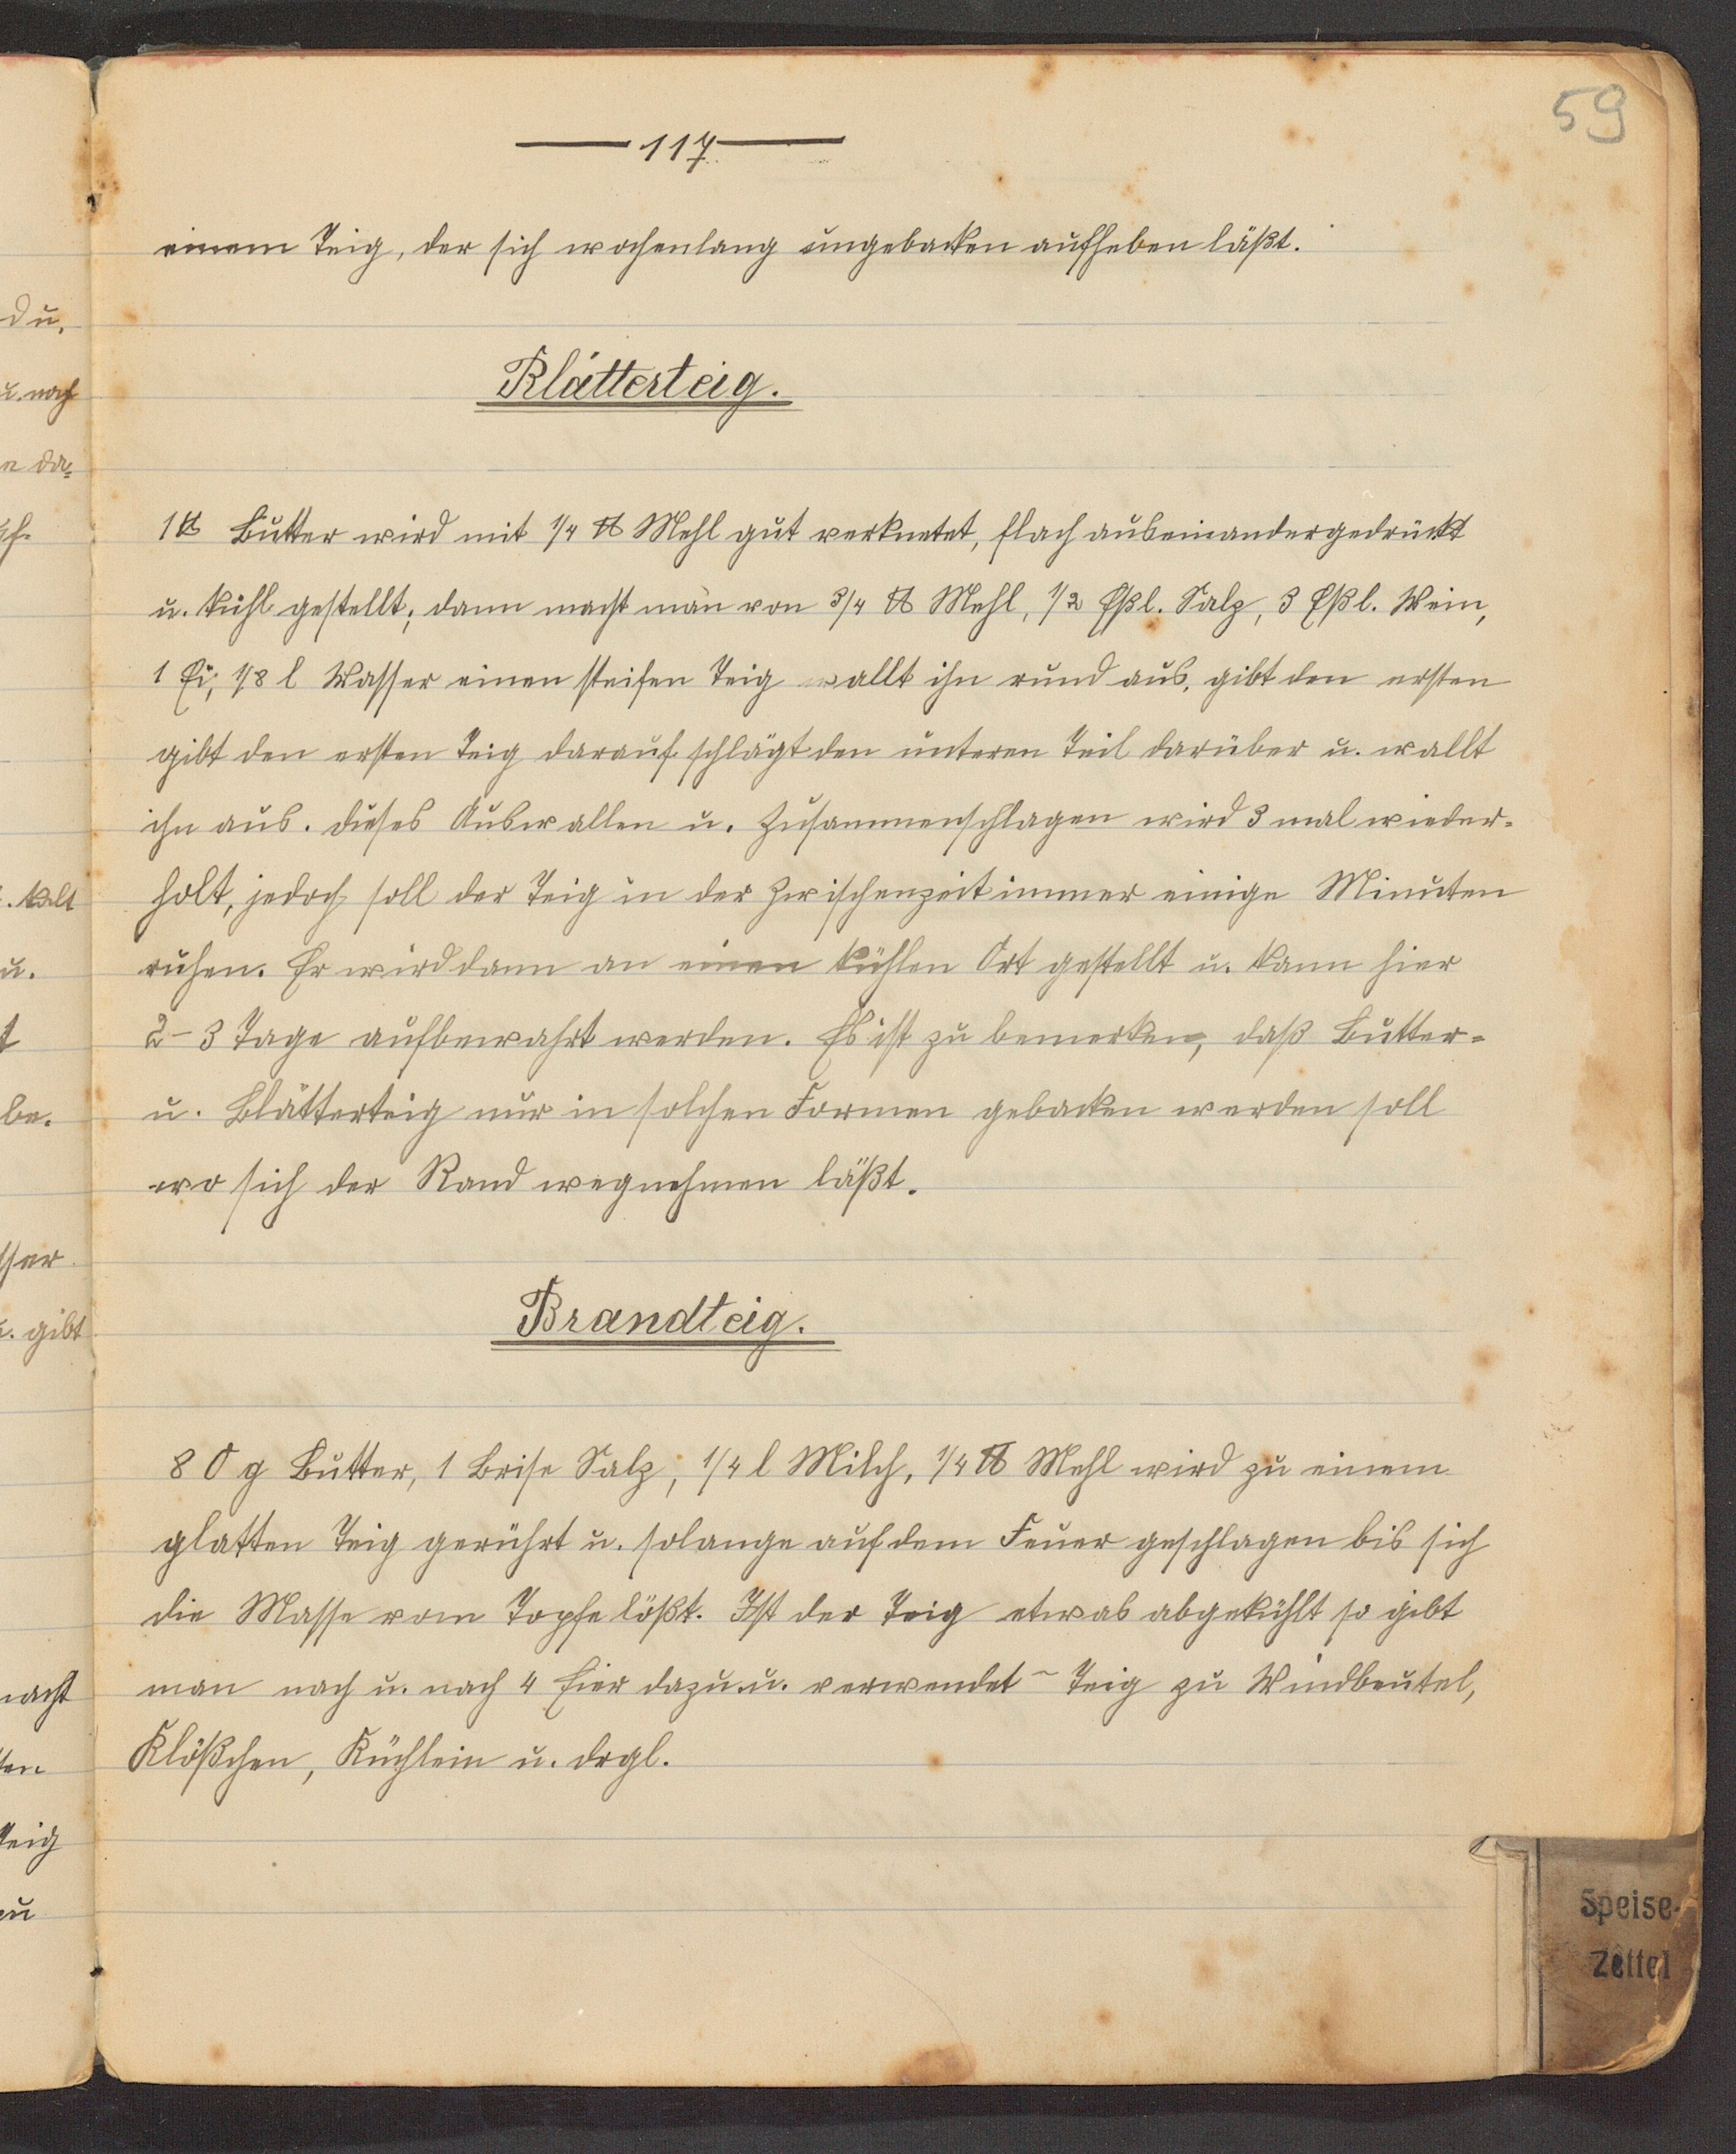 59
— 117 —
einem Teig, der sich wochenlang ungebacken aufheben läßt.
Blätterteig.
1 ℔ Butter wird mit 1/4 ℔ Mehl gut verknetet, flach auseinandergedrückt
u. kühl gestellt; dann macht man von 3/4 ℔ Mehl, 1/2 Eßl. Salz, 3 Eßl. Wein,
1 Ei, 1/8 l Wasser einen steifen Teig wallt ihn rund aus, gibt den ersten
gibt den ersten Teig darauf schlägt den unteren Teil darüber u. wallt
ihn aus. dieses Auswallen u. Zusammenschlagen wird 3 mal wieder-
holt, jedoch soll der Teig in der Zwischenzeit immer einige Minuten
ruhen. Er wird dann an einen kühlen Ort gestellt u. kann hier
2-3 Tage aufbewahrt werden. Es ist zu bemerken, daß Butter-
u. Blätterteig nur in solchen Formen gebacken werden soll
wo sich der Rand wegnehmen läßt.
Brandteig.
80 g Butter, 1 Brise Salz, 1/4 l Milch, 1/4 ℔ Mehl wird zu einem
glatten Teig gerührt u. solange auf dem Feuer geschlagen bis sich
die Masse vom Topfe lößt. Ist der Teig etwas abgekühlt so gibt
man nach u. nach 4 Eier dazu u. verwendet ~ Teig zu Windbeutel,
Klößchen, Küchlein u. drgl.
Speise-
Zettel
du.
u. noch
da-
kalt
u.
be.
gibt
Teig